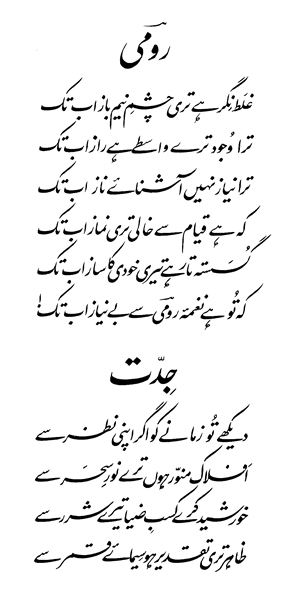 رومی
غلط نگر ہے تری چشم نیم باز اب تک
ترا وُجود ترے واسطے ہے راز اب تک
ترا نیاز نہیں آشنائے ناز اب تک
کہ ہے قیام سے خالی تری نماز اب تک
گُسستہ تار ہے تیری خودی کا ساز اب تک
کہ تُو ہے نغمۂ رومیؔ سے بے نیاز اب تک!
جِدّت
دیکھے تُو زمانے کو اگر اپنی نظر سے
افلاک منوّر ہوں ترے نورِ سحَر سے
خورشید کرے کسبِ ضیا تیرے شرر سے
ظاہر تری تقدیر ہو سیمائے قمر سے